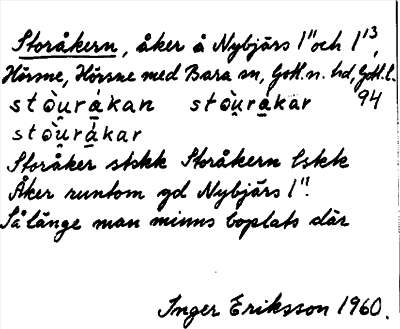 Storåkern, åker å Nybjärs 1¹¹ och 1¹³,
Hörsne, Hörsne med Bara sn, Gotl. n. hd, Gotl. l.
stòu̯rákan stòu̯rákar 94
stòu̯rákar
Storåker stskk Storåkern lskk
Åker runtom gd Nybjärs 1¹¹.
Så länge man minns boplats där
Inger Eriksson 1960.